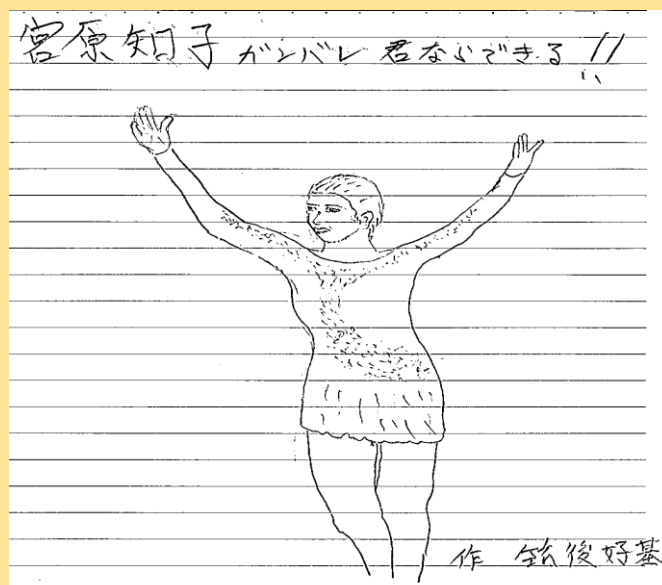 宮原知子 ガンバレ 君ならできる!!
作 後好基